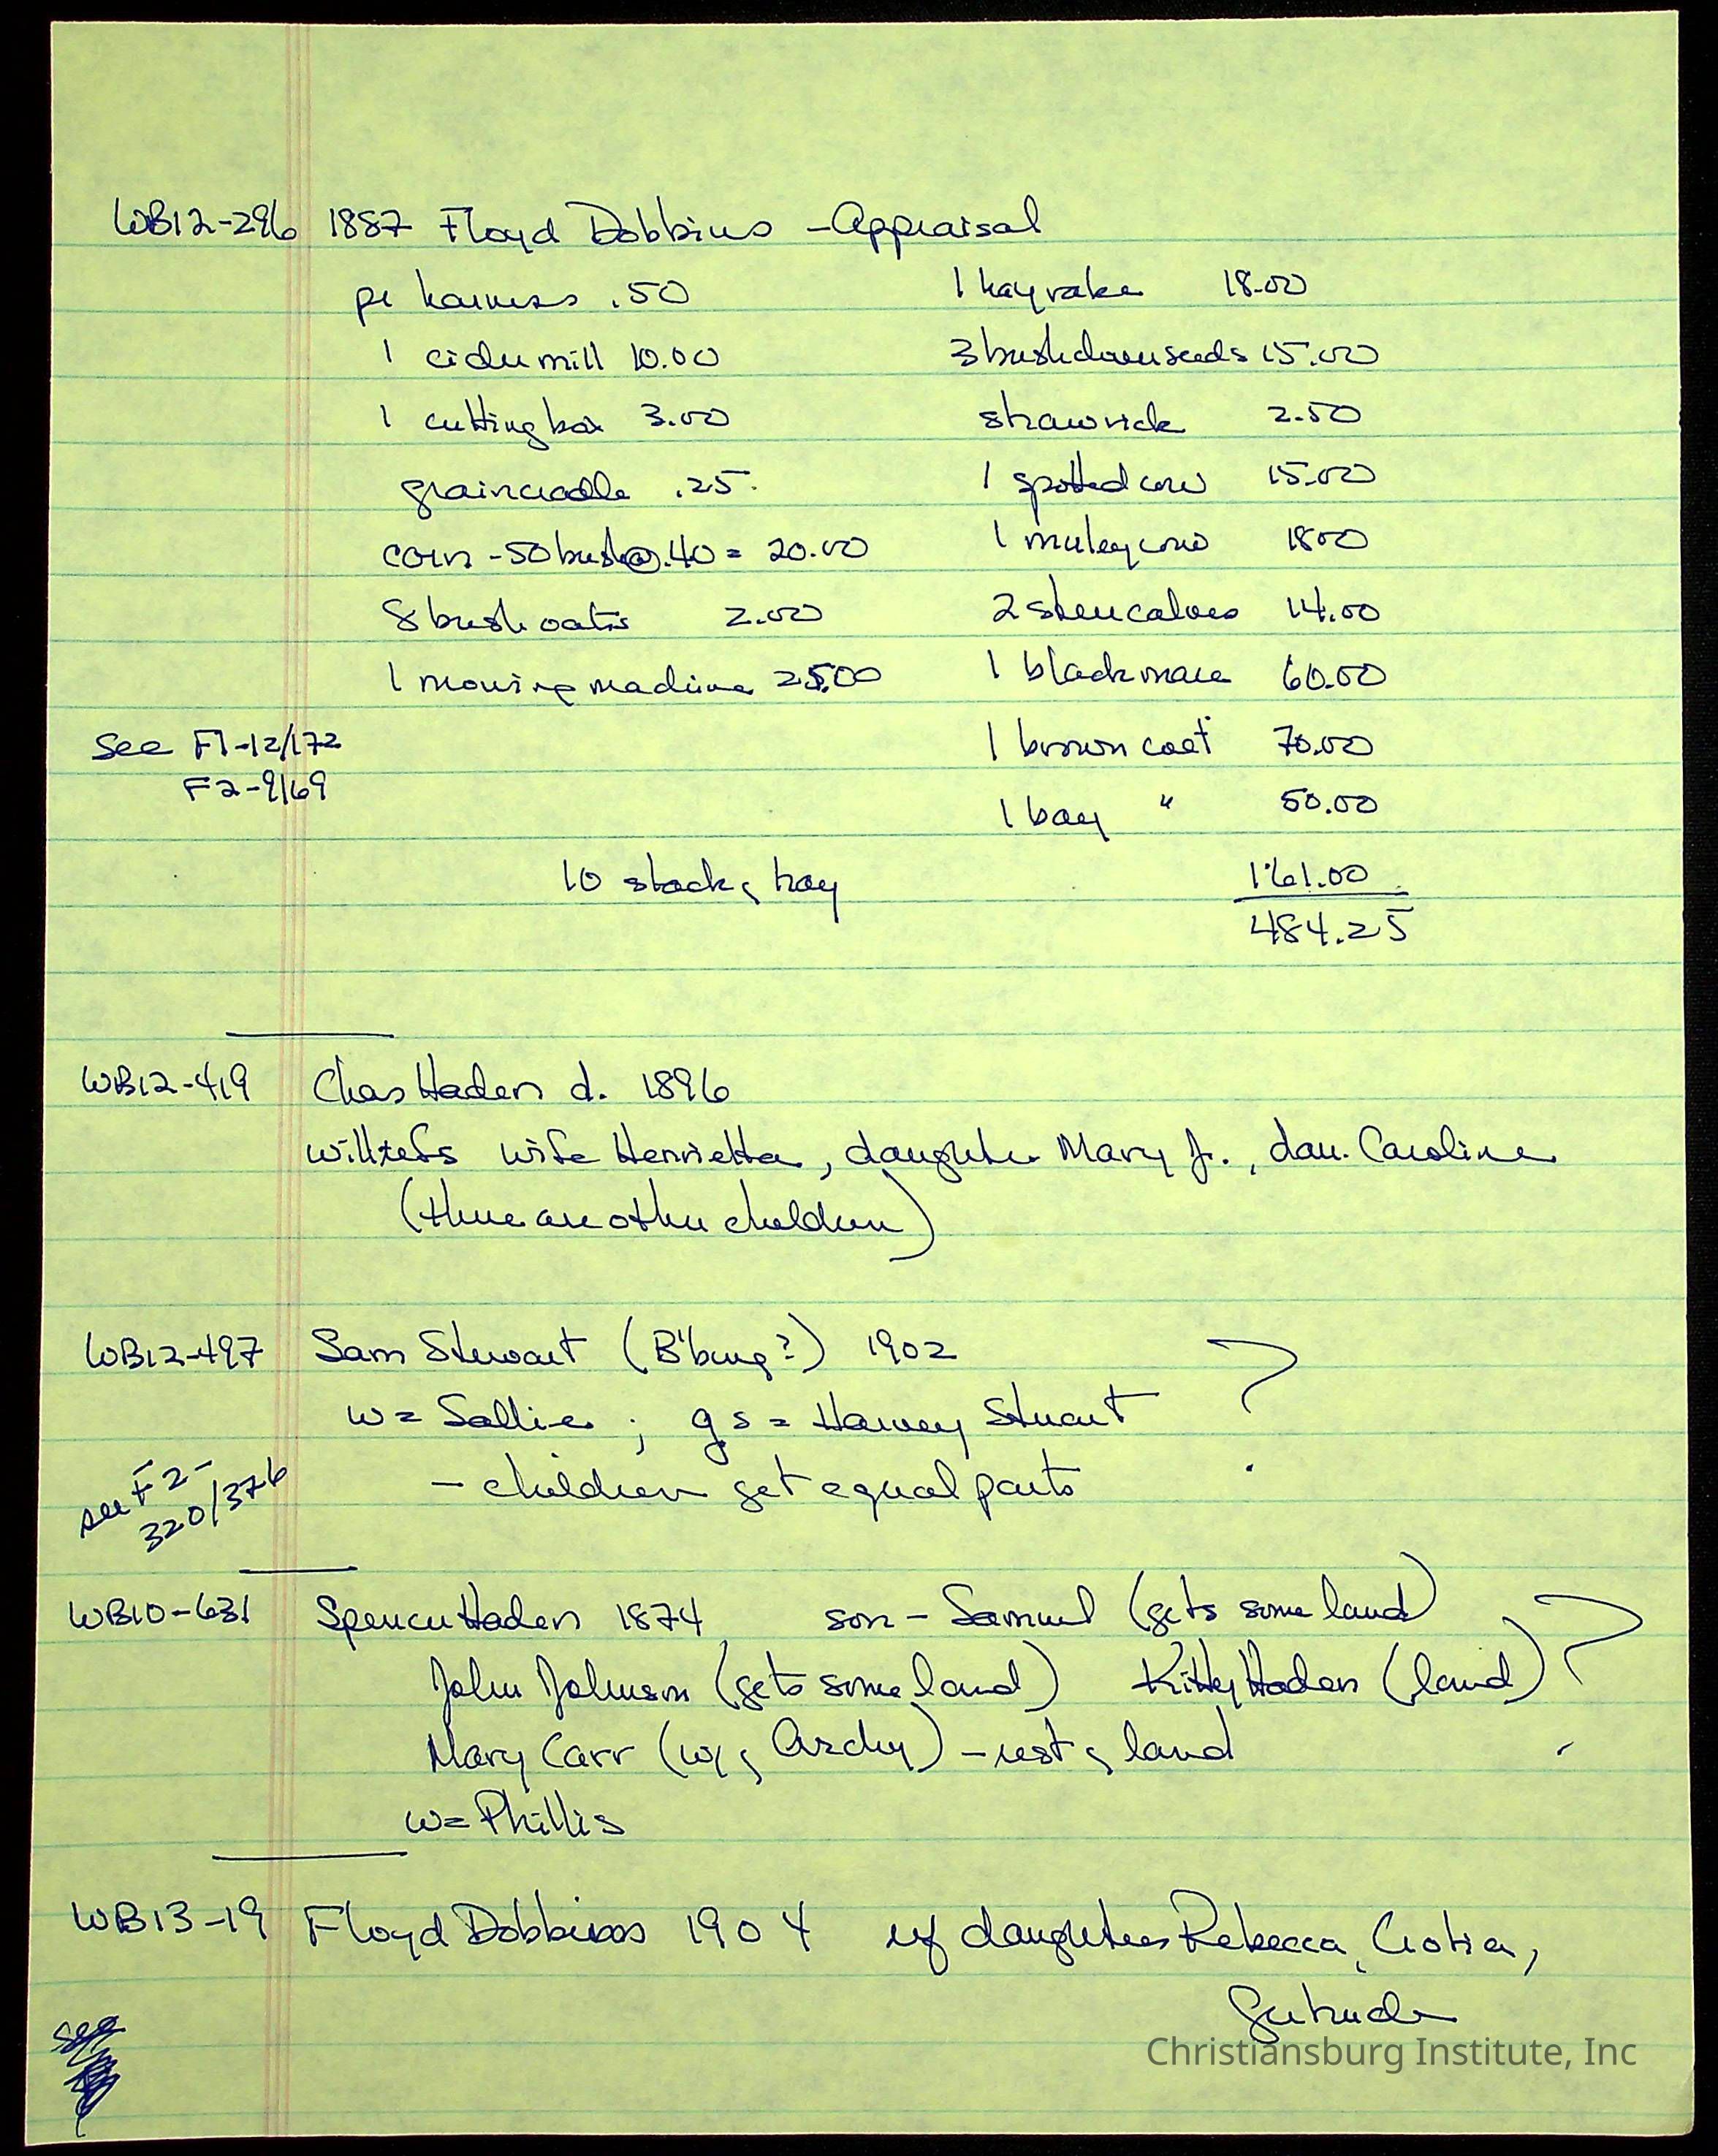 WB12-296 1887 Floyd Dobbins - Appraisal
pr harness .50 1 hayrake 18.00
1 cider mill 10.00 3 bush clover seeds 15.00
1 cutting box 3.00 straw rick 2.50
grain cradle .25 1 spotted cow 15.00
corn - 50 bush @ .40 = 20.00 1 muley cow 18.00
8 bush oats 2.00 2 steer calves 14.00
1 mowing machine 25.00 1 black mare 60.00
See F1-12/172 1 brown colt 70.00
F2-9/69 1 bay " 50.00
10 stacks hay 161.00
484.25
WB12-419 Chas Haden d. 1896
wife Henrietta, daughter Mary J., dau. Caroline
(there are other children)
WB12-497 Sam Stewart (B'burg?) 1902 ?
w = Sallie ; gs = Harvey Stuart
- children get equal parts
see F2-
320/376
WB10-631 Spencer Haden 1874 son - Samuel (gets some land) ?
John Johnson (gets some land) Kitty Haden (land)
Mary Carr (w/ of Archy) - rest of land
w = Phillis
WB13-19 Floyd Dobbins 1904 daughters Rebecca,
Gertrude
see
Christiansburg Institute, Inc